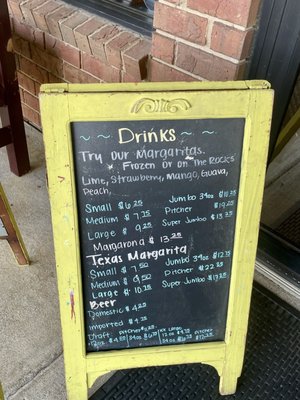 ~ ~ Drinks ~ ~
Try Our Margaritas.
* Frozen Or on The Rocks
Lime, Strawberry, Mango, Guava,
Peach,
Small $ 6.25 Jumbo 34oz $
Medium $ 7.25 Pitcher $
Large $ 9.25 Super Jumbo $
Margarona $ 13.25
Texas Margarita
Small $ 7.50 Jumbo 34oz $ 12.75
Medium $ Pitcher $ 22.25
Large $ 10.75 Super Jumbo $
Beer
Domestic $ 4.25
Imported $ 4.75
Draft
12oz